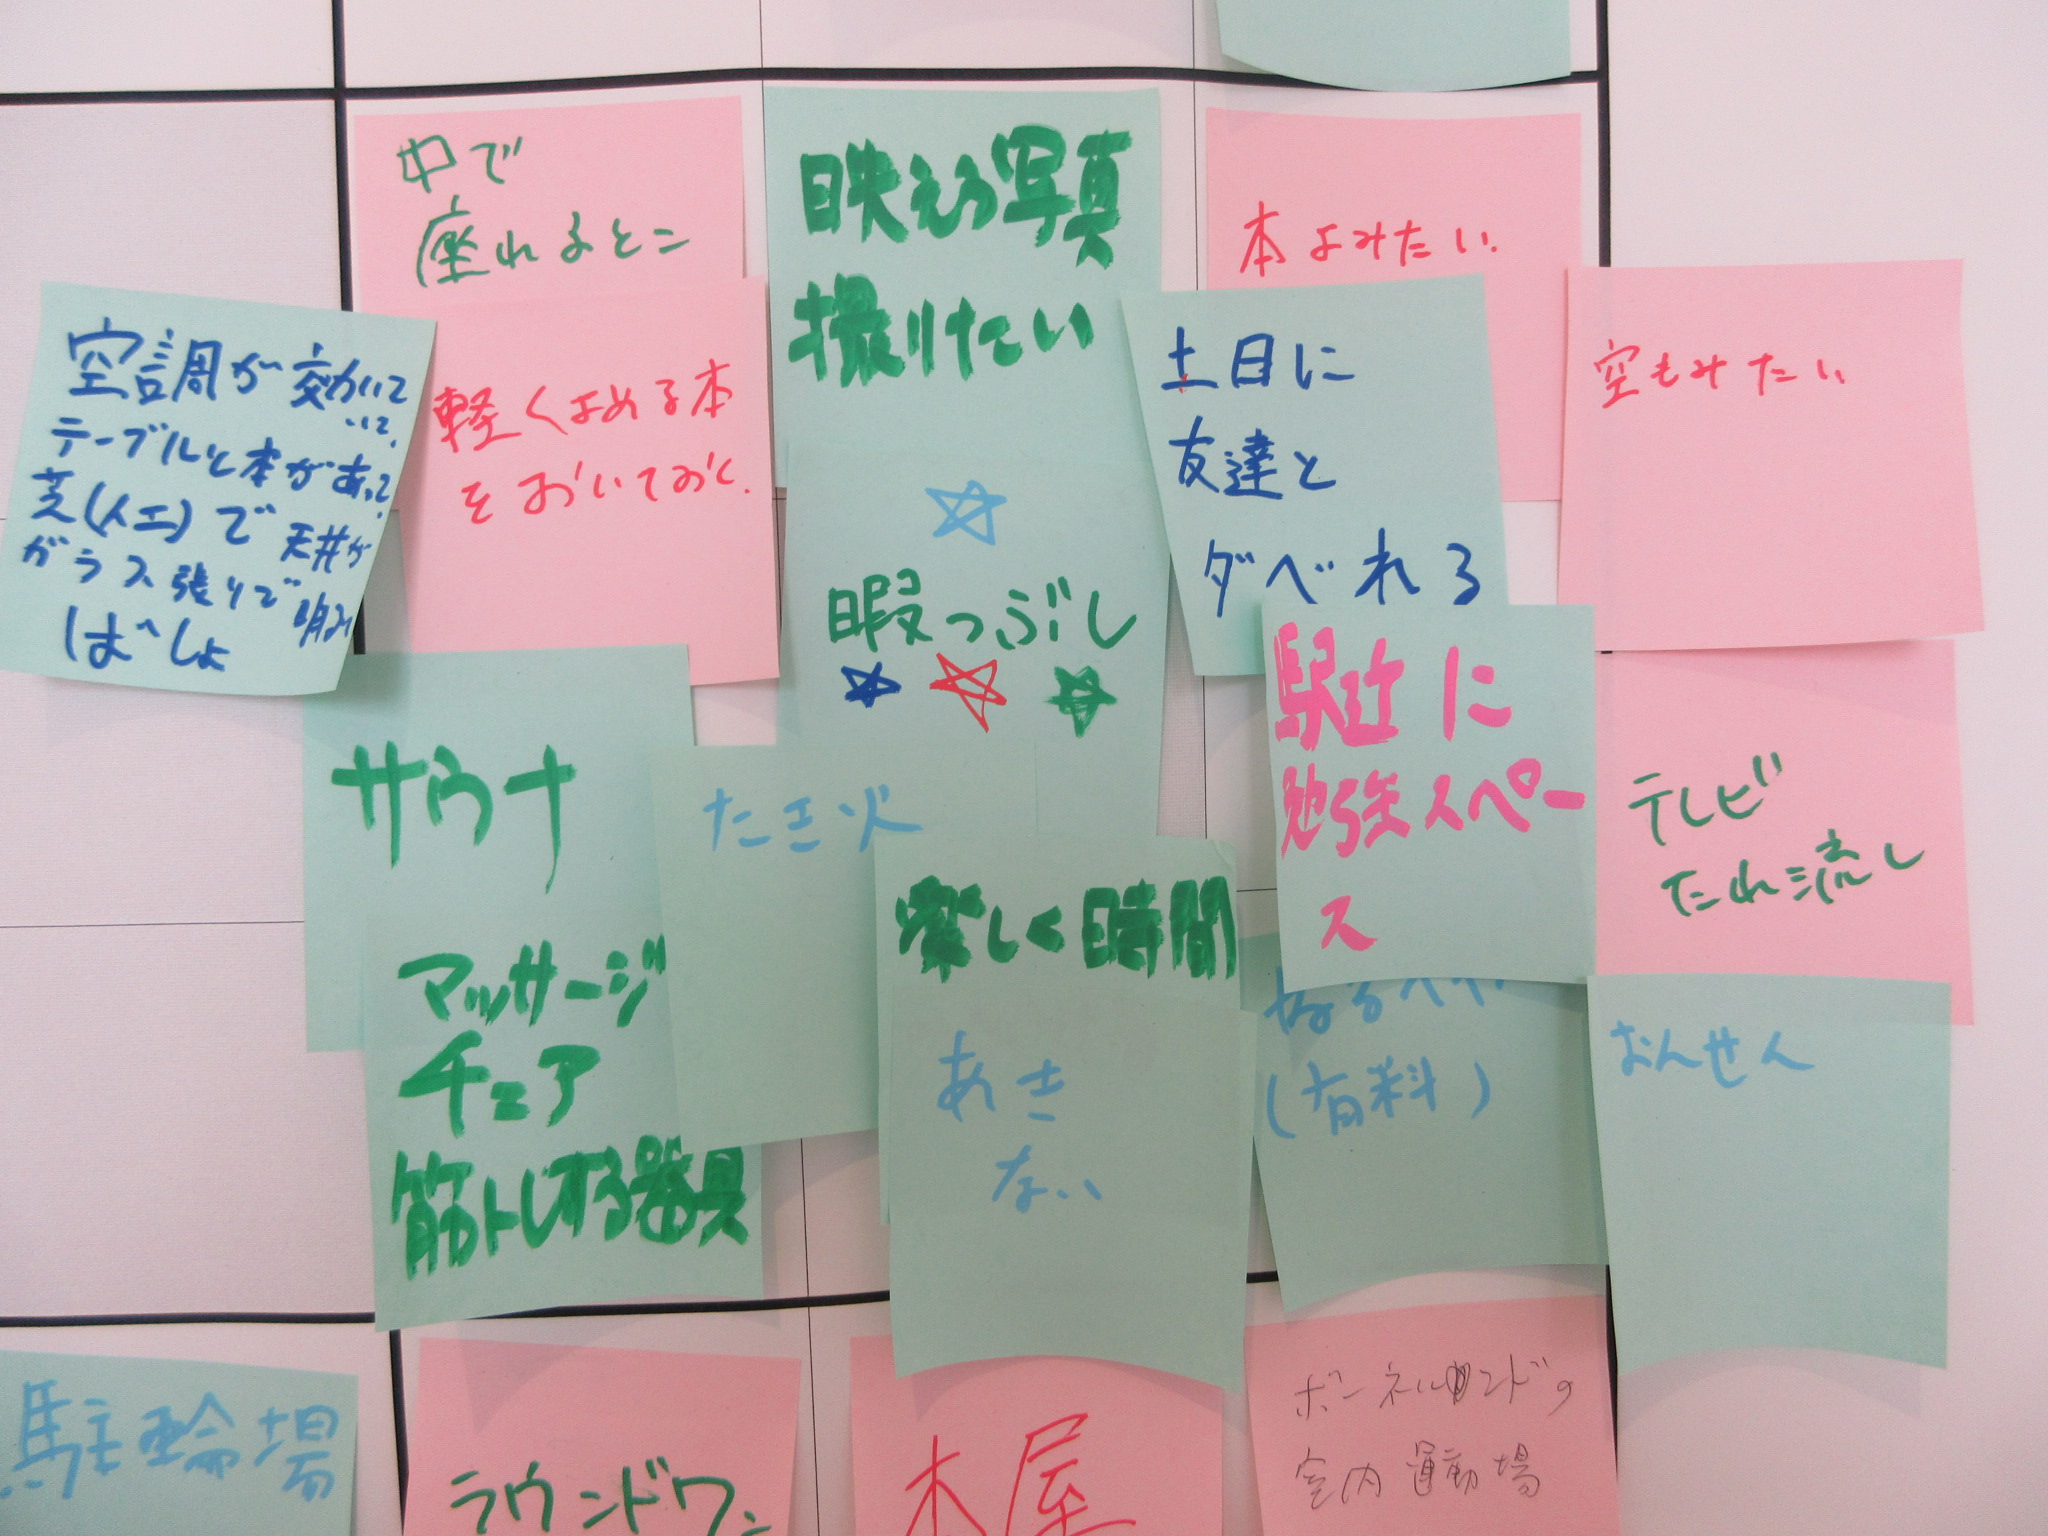 中で
座れるとこ
映える写真
撮りたい
本よみたい
空調が効いて
いて、
テーブルと本があって、
芝(人工)で天井が
ガラス張りで明るい
ばしょ
軽くよめる本
をおいておく
土日に
友達と
ダべれる
空もみたい
暇つぶし
サウナ
たき火
駅近に
勉強スペー
ス
テレビ
たれ流し
マッサージ
チェア
筋トレする器具
楽しく時間
あき
ない
(有料)
おんせん
駐輪場
ラウンドワン
本屋
ボーネルンドの
室内運動場